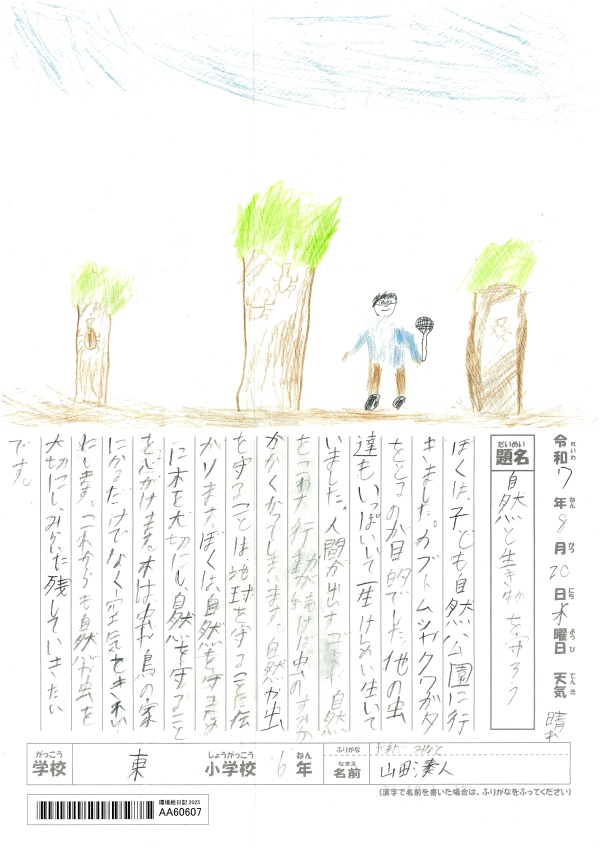 令和7年9月20日水曜日 天気 晴れ
れいわ ねん がつ にち ようび てんき
だいめい
題名 自然と生き物を守ろう
ぼくは、子ども自然公園に行
きました。カブトムシやクワガタ
をとるのが目的でした。他の虫
達もいっぱいいて一生けんめい生いて
いました。人間が出すゴミ 自然
をこわす行動が続けば虫のすみか
がなくなってしまいます。自然が虫
を守ることは地球を守ることに伝
がります。ぼくは、自然を守るため
に木を大切にし自然を守ること
を心がけます。木は虫や鳥の家
になるだけでなく空気をきれい
にします。これからも自然が虫を
大切にし、みらいに残していきたい
です。
がっこう しょうがっこう ねん ふりがな
学校 東 小学校 6年
なまえ
名前 山田湊人
(漢字で名前を書いた場合は、ふりがなをふってください)
環境絵日記2025
AA60607